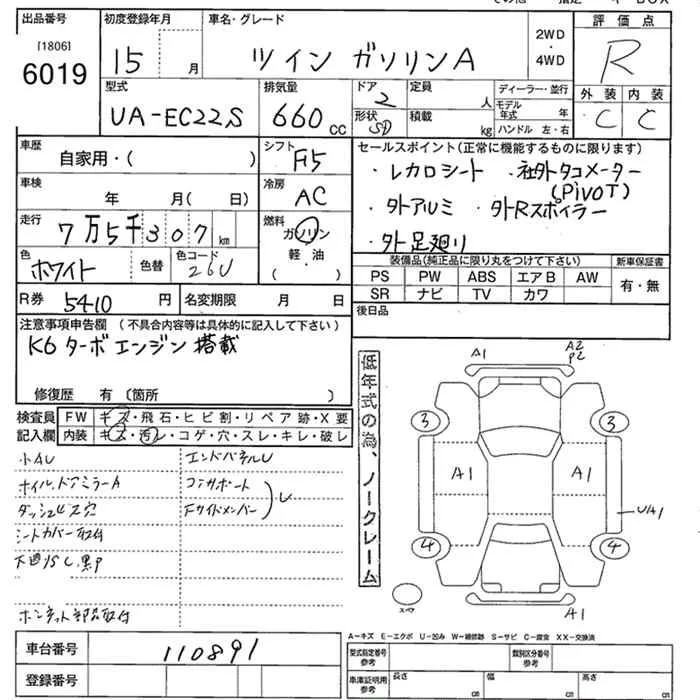 出品番号 初度登録年月 車名・グレード 2WD ・ 4WD 評価点
[1806]
6019 15 月 ツイン ガソリンA R
型式 排気量 ドア 定員 ディーラー・並行 外装 内装
UA-EC22S 660cc 2 人 モデル年式 年 C C
形状 積載 kg ハンドル 左・右
SD
車歴 自家用・( ) シフト F5 セールスポイント(正常に機能するものに限ります)
・レカロシート ・社外タコメーター
(PIVOT)
車検 年 月( 日) 冷房 AC
・外アルミ ・外Rスポイラー
走行 7万5千307km 燃料 ガソリン
・外足廻り
軽・油
( )
色 ホワイト 色替 色コード 26U
装備品(純正品に限り丸をつけて下さい) 新車保証書
PS PW ABS エアB AW 有・無
SR ナビ TV カワ
R券 5410円 名変期限 月 日 後日品
注意事項申告欄 (不具合内容等は具体的に記入して下さい)
K6ターボエンジン搭載
修復歴 有〔箇所 〕
検査員 FW キズ・飛石・ヒビ割・リペア跡・X要
記入欄 内装 キズ・汚レ・コゲ・穴・スレ・キレ・破レ
小AU エンドパネルU
ホイル、ドアミラーA コアサポート
ダッシュビス穴 Fサイドメンバー U
シートカバー取付
下廻りSC、黒P
ボンネット部品取付
低年式の為、ノークレーム
A1 A2
P2
3 3
A1 A1
UA1
4 4
A1
A-キズ E-エクボ U-凹み W-補修跡 S-サビ C-腐食 XX-交換済
車台番号 110891
型式指定番号 参考 類別区分番号 参考
登録番号
車庫証明用 参考 長さ cm 幅 cm 高さ cm